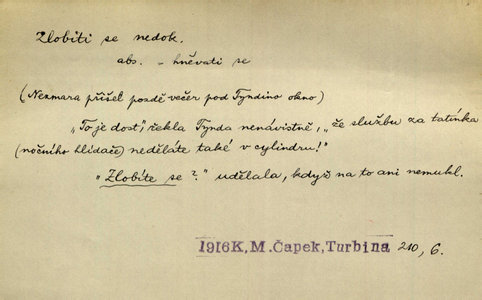 Zlobiti se nedok.
abs. – hněvati se
(Nezmara přišel pozdě večer pod Tyndino okno)
„To je dost", řekla Tynda nenávistně, „že službu za tatínka
(nočního hlídače) neděláte také v cylindru!"
„Zlobíte se?" udělala, když na to ani nemukl.
1916 K, M. Čapek, Turbina 210, 6.